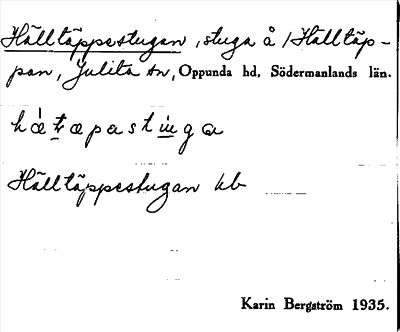 Hälltäppestugan, stuga å /Hälltäp-
pan, Julita sn, Oppunda hd, Södermanlands län.
hǽtæpastugα
Hälltäppestugan kb
Karin Bergström 1935.